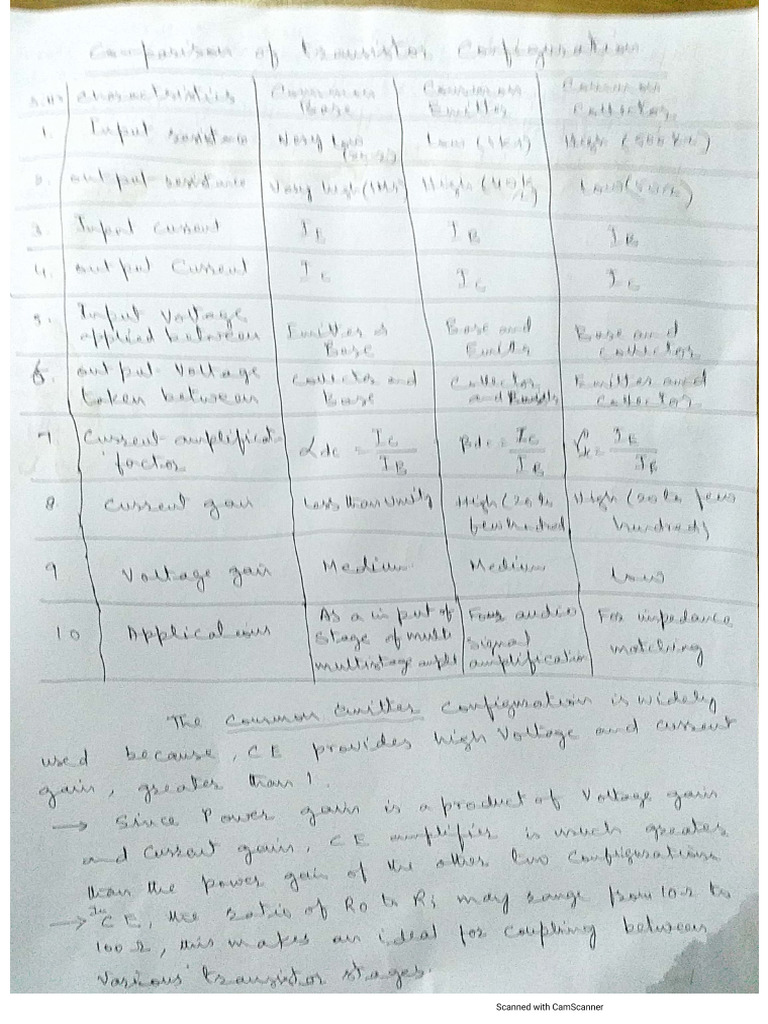 Comparison of transistor Configuration
S.No Characteristics Common Base Common Emitter Common Collector
1. Input resistance Very Low Low (1kΩ) High (500 kΩ)
2. output resistance Very high (1MΩ) High (40k) Low (50Ω)
3. Input Current I_E I_B I_B
4. output Current I_C I_C I_E
5. Input Voltage applied between Emitter & Base Base and Emitter Base and collector
6. output Voltage taken between Collector and Base Collector and Emitter and collector
7 Current amplificat factor α dc = I_C / I_B β dc = I_C / I_B = I_E / I_B
8. Current gain Less than Unity High (20 to few hundred High (20 to few hundreds)
9 Voltage gain Medium Medium Low
10 Applications As a input of stage of multi multistage ampli Four audio signal amplification For impedance matching
The Common Emitter Configuration is widely
used because, CE provides high Voltage and current
gain, greater than 1.
→ Since Power gain is a product of Voltage gain
and Current gain, CE amplifier is much greater
than the power gain of the other two Configurations
→ In CE, the ratio of Ro to Ri may range from 10Ω to
100Ω, this makes an ideal for coupling between
various transistor stages.
Scanned with CamScanner